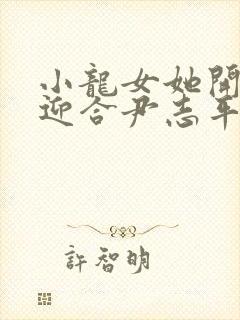 小龍女她開
迎合尹志平
許智明